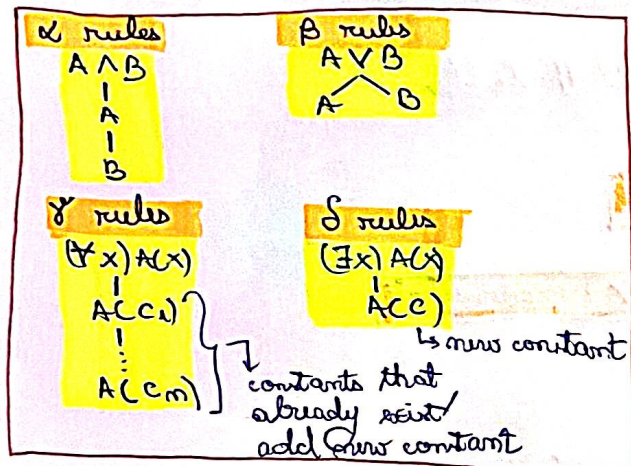 α rules
A ∧ B
A
B
β rules
A ∨ B
A B
γ rules
(∀x) A(x)
A(C₁)
⋮
A(Cₘ)
constants that
already exist/
add new constant
δ rules
(∃x) A(x)
A(C)
↳ new constant